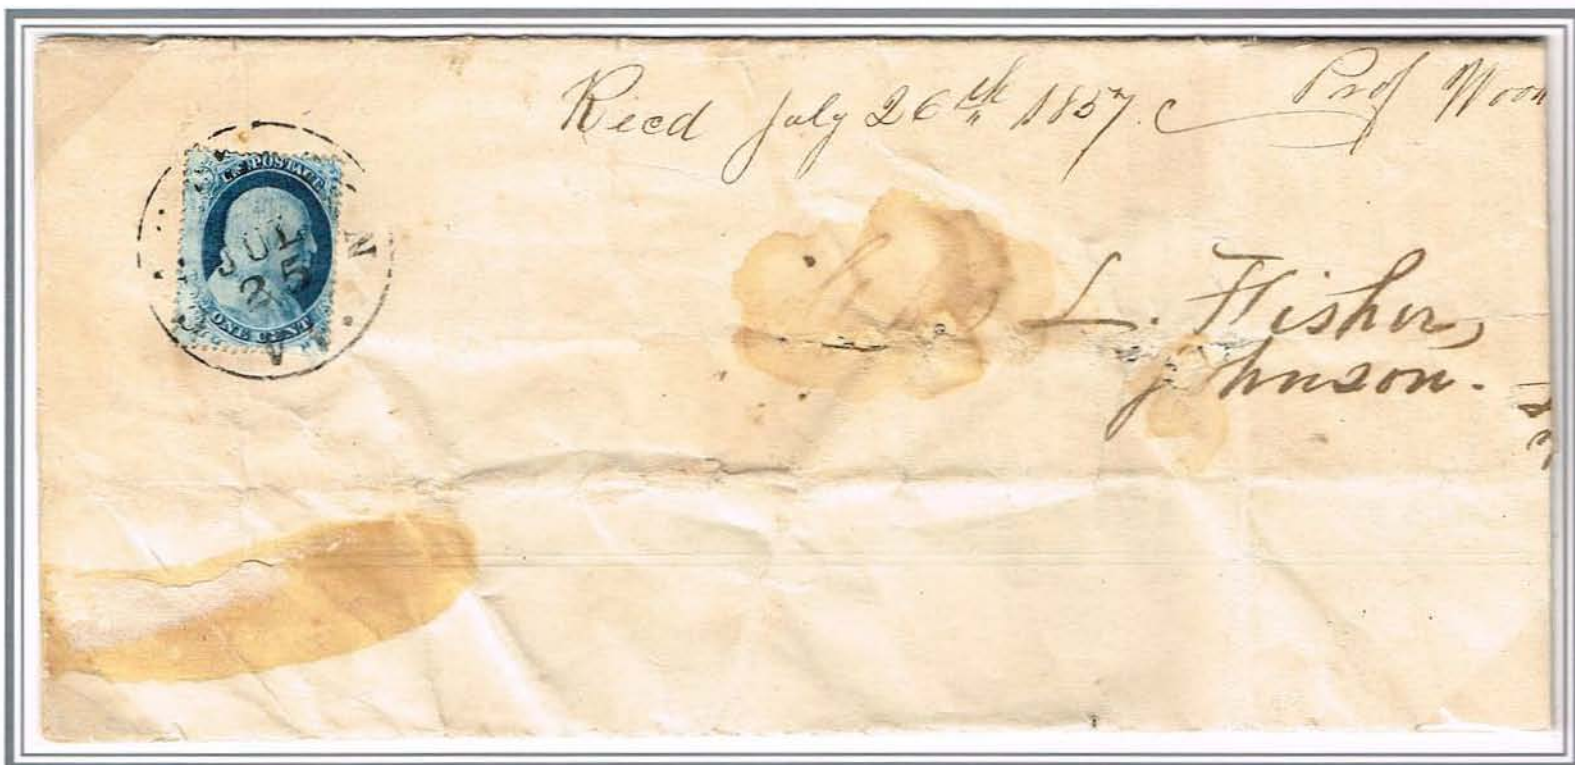 Recd July 26th 1857. Prof
U.S. POSTAGE
JUL
25
ONE CENT
N
L. Fisher,
Johnson.